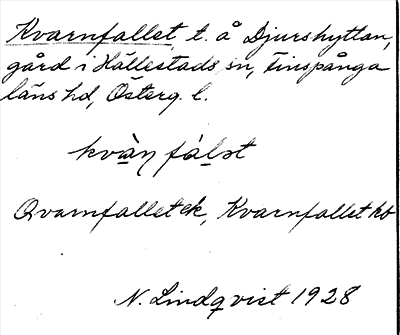 Kvarnfallet, t. å Djurshyttan,
gård i Hällestads sn, Finspånga
läns hd, Österg. l.
kvàn̥ fálet
Qvarnfallet ek, Kvarnfallet hb
N. Lindqvist 1928